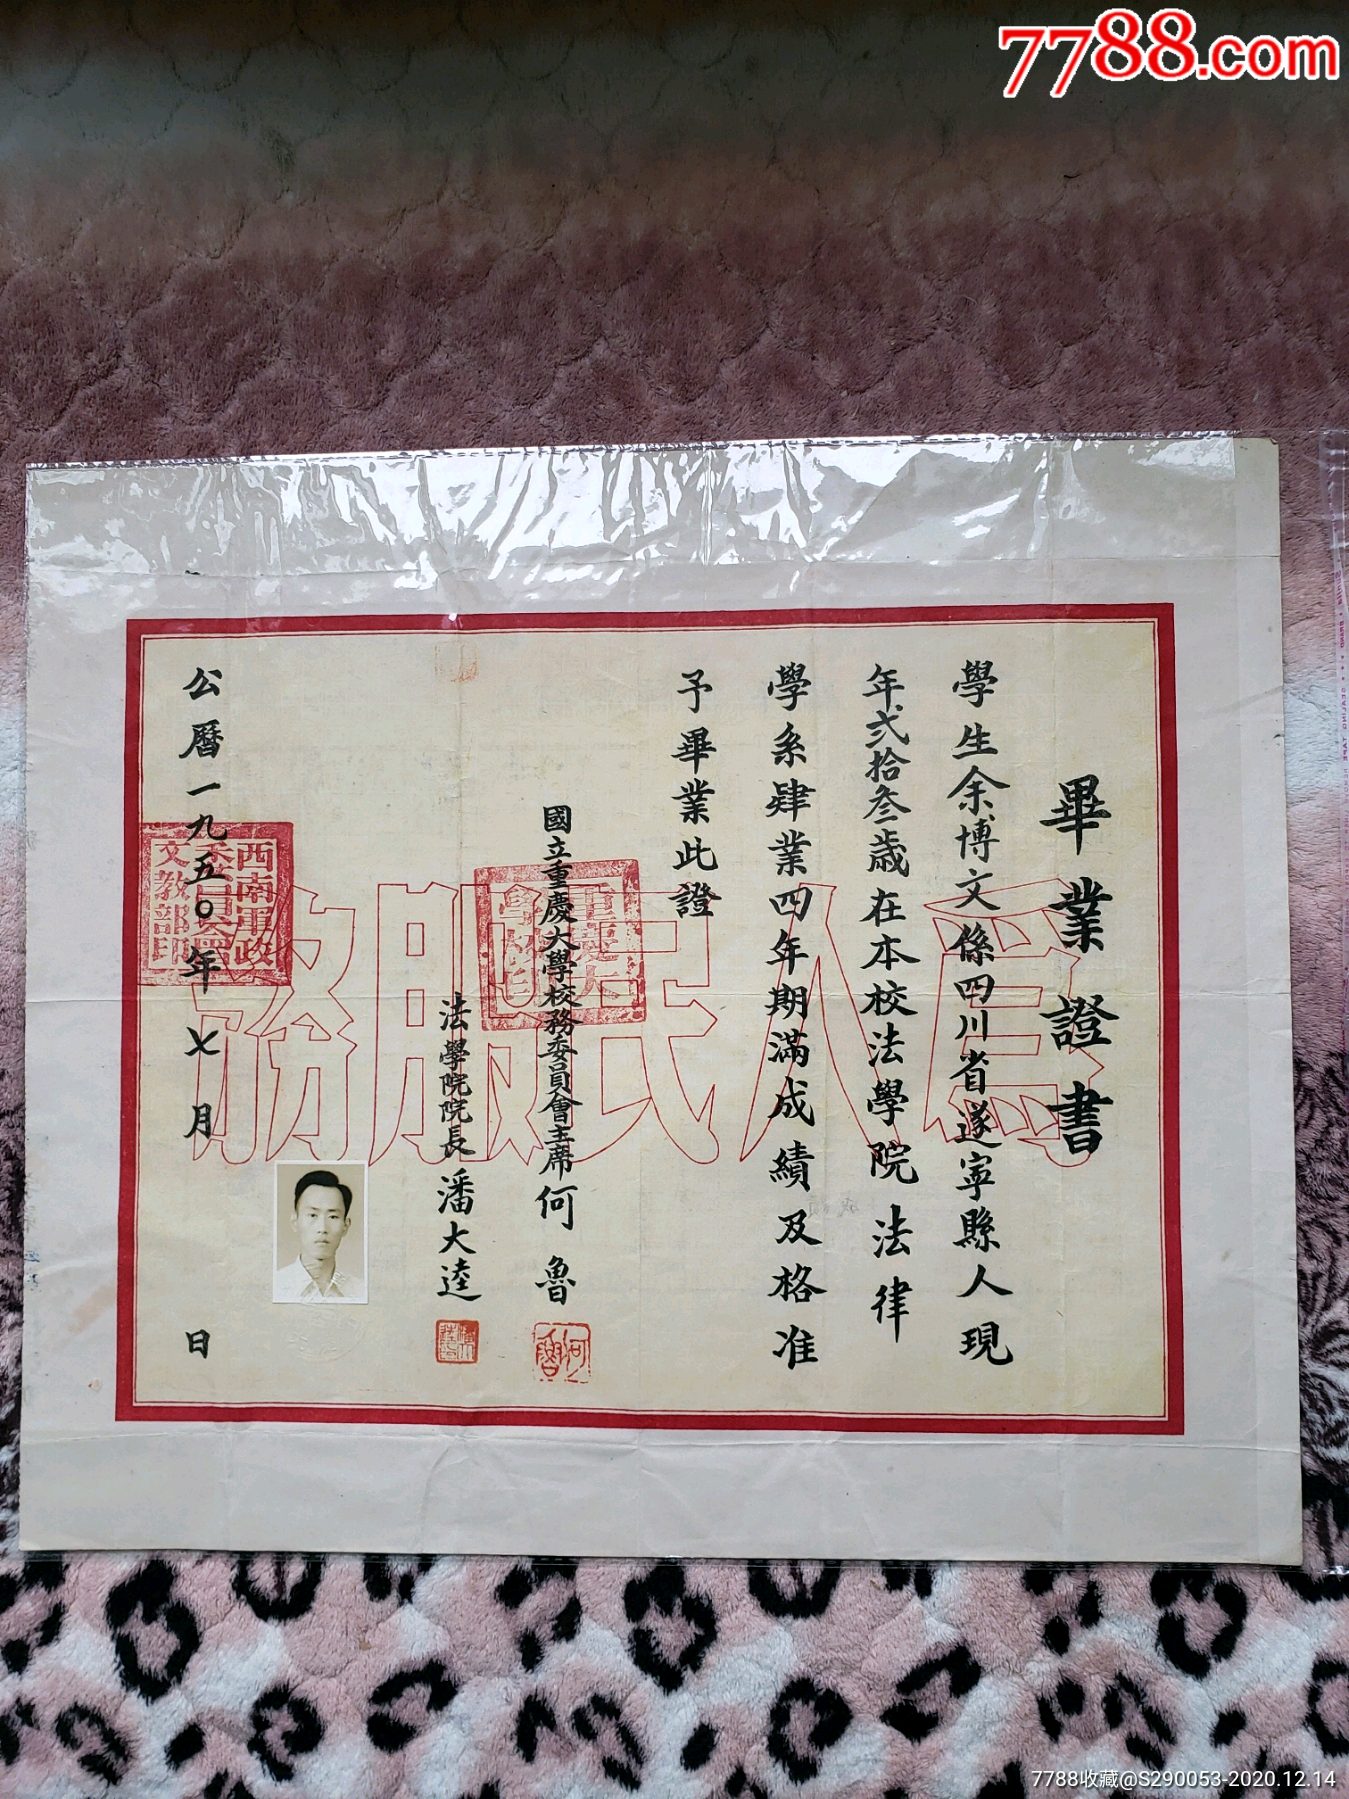 7788.com
畢業證書
學生余博文係四川省遂寧縣人現
年弍拾叁歲在本校法學院法律
學系肄業四年期滿成績及格准
予畢業此證
國立重慶大學校務委員會主席何魯
法學院院長潘大逵
公曆一九五〇年七月 日
為人民服務
西南軍政
委員會
文教部印
7788收藏@S290053-2020.12.14